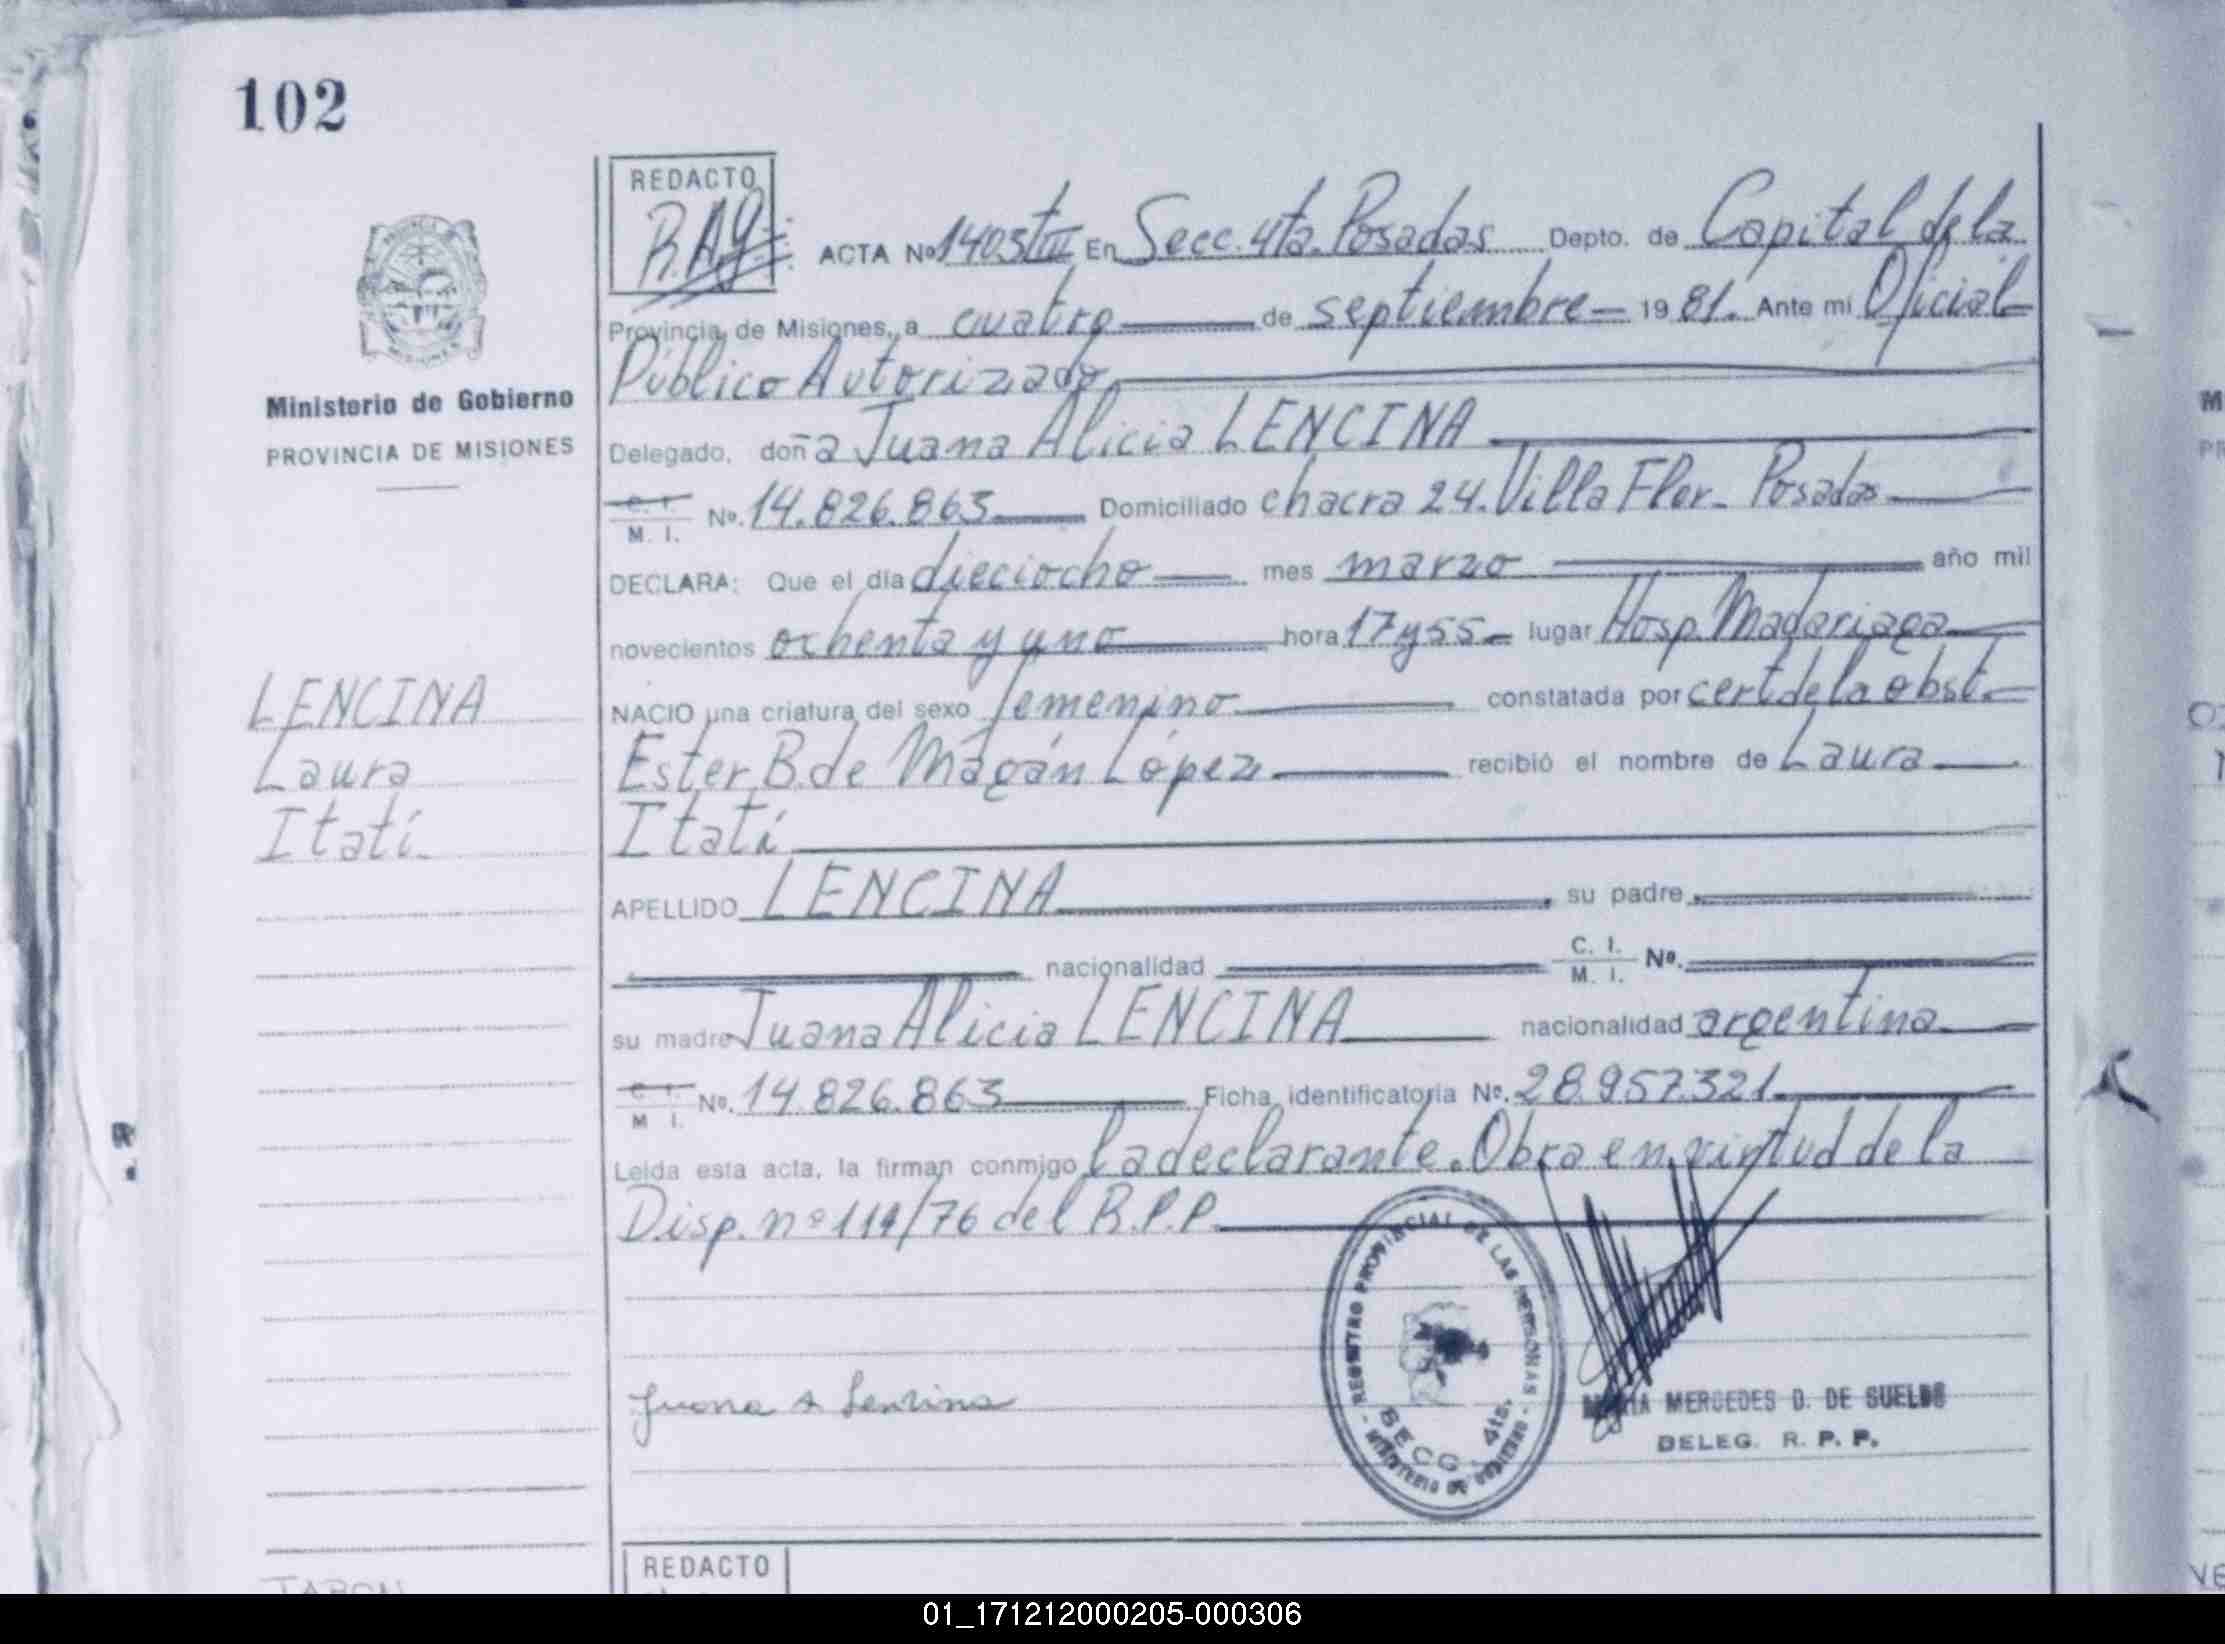 102
REDACTO
R.A.G.
ACTA No 1403 tIII En Secc. 4ta. Posadas Depto. de Capital de la
Provincia de Misiones, a cuatro de septiembre 1981. Ante mi Oficial
Público Autorizado
Ministerio de Gobierno
PROVINCIA DE MISIONES
Delegado, doña Juana Alicia LENCINA
C. I.
M. I. No. 14.826.863 Domiciliado chacra 24. Villa Flor - Posadas
DECLARA: Que el día dieciocho mes marzo año mil
novecientos ochenta y uno hora 17 y 55 lugar Hosp. Madariaga
LENCINA
Laura
Itatí
NACIO una criatura del sexo femenino constatada por cert de la obst.
Ester B. de Magán López recibió el nombre de Laura
Itatí
APELLIDO LENCINA su padre
nacionalidad C. I.
M. I. No.
su madre Juana Alicia LENCINA nacionalidad argentina
C. I.
M I. No. 14.826.863 Ficha identificatoria No. 28.957.321
Leida esta acta, la firman conmigo la declarante. Obra en virtud de la
Disp. nº 111/76 del R.P.P.
REGISTRO PROVINCIAL DE LAS PERSONAS
SECC. 4ta.
MINISTERIO DE GOBIERNO
Juana A Lencina
MARIA MERCEDES D. DE SUELDO
DELEG. R. P. P.
REDACTO
01_171212000205-000306